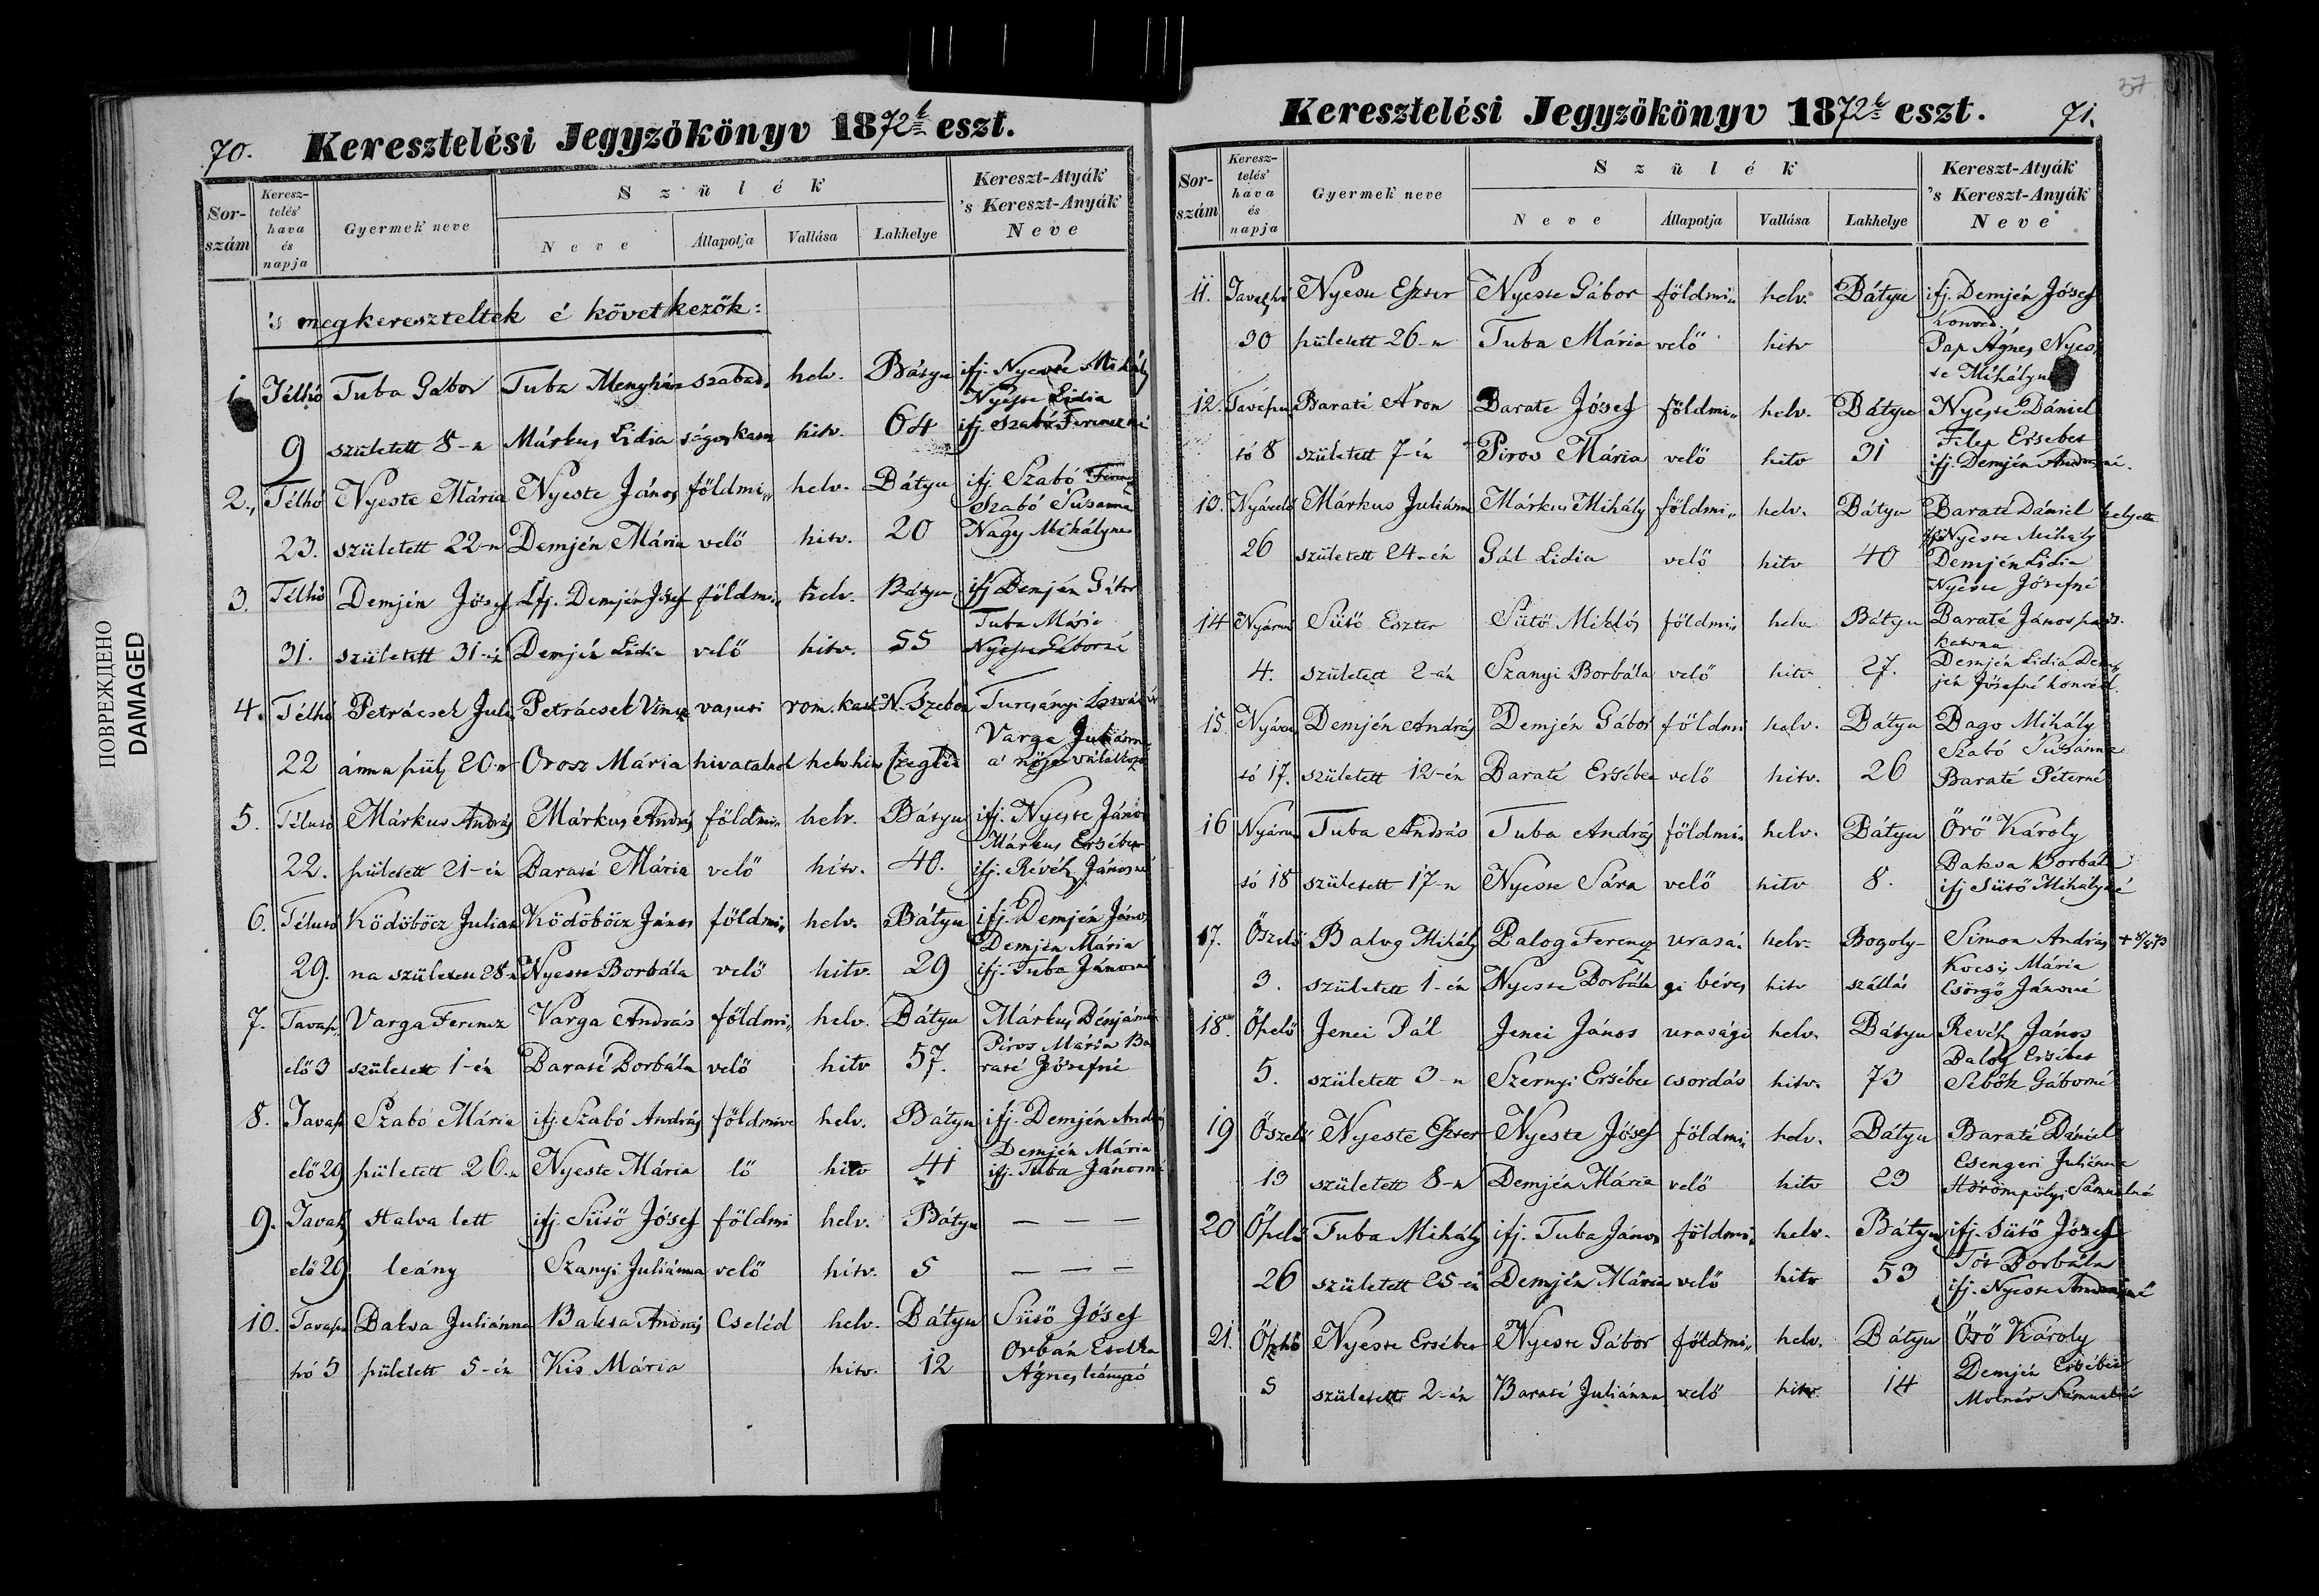 70. Keresztelési Jegyzökönyv 1872k eszt.
Sor-szám Keresz-telés' hava és napja Gyermek neve Szülék Neve Állapotja Vallása Lakhelye Kereszt-Atyák 's Kereszt-Anyák Neve
's megkereszteltek é következők:
1. Télhó Tuba Gábor Tuba Menyhért szabad, helv. Bátyu ifj. Nyeste Mihály
Nyeste Lidia
9 született 8-n Márkus Lidia ságos kato hitv. 64 ifj. Szabó Ferenczné
2., Télhó Nyeste Mária Nyeste János földmi„ helv. Bátyu ifj. Szabó
Szabó Susanna
23. született 22-n Demjén Mária velő hitv. 20 Nagy Mihályne
3. Télhó Demjén Jósef Ifj. Demjén Jósef földmi„ helv. Bátyu ifj Demjén Gábor
Tuba Mária
31. született 31-én Demjén Lidia velő hitv. 55 Nyeste Gáborné
4. Télhó Petrácsek Juli Petrácsek Vincz vasuti rom. kath N. Szeben Turcsányi
Varga Juliánna
22 ánna szül 20-n Orosz Mária hivatalnok helv hitv Czegléd a' nője
5. Télutó Márkus András Márkus András földmi„ helv. Bátyu ifj. Nyeste János
Márkus Ersébet
22. született 21-én Baraté Mária velő hitv. 40. ifj. Révész Jánosné
6. Télutó Ködöböcz Julian Ködöböcz János földmi„ helv. Bátyu ifj. Demjén János
Demjén Mária
29. na született 28-n Nyeste Borbála velő hitv. 29 ifj. Tuba Jánosné
7. Tavasz Varga Ferencz Varga András földmi„ helv. Bátyu Márkus Bénjámin
Piros Mária Ba
elő 3 született 1-én Baraté Borbála velő hitv 57. raté Jósefné
8. Tavasz Szabó Mária ifj. Szabó András földmive helv. Bátyu ifj. Demjén András
Demjén Mária
elő 29 született 26-n Nyeste Mária lő hitv 41 ifj. Tuba Jánosné
9. Tavasz Halva lett ifj. Sütő Jósef földmi helv. Bátyu — — —
elő 29 leány Szanyi Juliánna velő hitv. 5 — — —
10. Tavasz Baksa Juliánna Baksa András Cseléd helv. Bátyu Sütő Jósef
Orbán Esetka
hó 5 született 5-én Kis Mária hitv. 12 Ágnes leányzó
37
Keresztelési Jegyzökönyv 1872k eszt. 71.
Sor-szám Keresz-telés' hava és napja Gyermek neve Szülék Neve Állapotja Vallása Lakhelye Kereszt-Atyák 's Kereszt-Anyák Neve
11. Tavaszhó Nyeste Eszter Nyeste Gábor földmi„ helv. Bátyu ifj. Demjén Jósef
honvéd.
30 született 26-n Tuba Mária velő hitv Pap Ágnes Nyes
te Mihályné
12. Tavaszu Baraté Áron Baraté Jósef földmi„ helv. Bátyu Nyeste Dániel
Filep Ersebet
tó 8 született 7-én Piros Mária velő hitv 31 ifj. Demjén Andrásné.
13. Nyárelő Márkus Juliánna Márkus Mihály földmi„ helv. Bátyu Baraté Dániel helyett
ifj Nyeste Mihály
26 született 24-én Gál Lidia velő hitv 40 Demjén Lidia
Nyeste Jósefné
14 Nyárutó Sütő Eszter Sütő Miklós földmi„ helv Bátyu Baraté János
katona
4. született 2-án Szanyi Borbála velő hitv 27. Demjén Lidia Dem
jén Jósefné honvéd.
15 Nyáru Demjén András Demjén Gábor földmi helv. Bátyu Bago Mihály
Szabó Susánna
tó 17. született 12-én Baraté Ersébet velő hitv. 26 Baraté Péterné
16 Nyáru Tuba András Tuba András földmi„ helv. Bátyu Örő Károly
Baksa Borbála
tó 18 született 17-n Nyeste Sára velő hitv 8. ifj Sütő Mihályné
17. Őszelő Balog Mihály Balog Ferencz urasá- helv. Bogoly- Simon András + 8/873
Kocsis Mária
3. született 1-én Nyeste Borbála gi béres hitv szállás Csörgő Jánosné
18. Őszelő Jenei Pál Jenei János urasági helv. Bátyu Revész János
Balog Ersébet
5. született 3-n Szernyi Ersébet csordás hitv. 73 Sebők Gáborné
19 Őszelő Nyeste Eszter Nyeste Jósef földmi„ helv. Bátyu Baraté Dániel
Csengeri Juliánna
13 született 8-n Demjén Mária velő hitv 23 Hörömpölyi Sámuelné
20 Őszelő Tuba Mihály ifj. Tuba János földmi„ helv. Bátyu ifj. Sütő Jósef
Tót Borbála
26 született 25-én Demjén Mária velő hitv 53 ifj. Nyeste Andrásné
21. Őszhó Nyeste Ersébet Nyeste Gábor földmi„ helv. Bátyu Örő Károly
Demjén Ersébet
5 született 2-án Baraté Juliánna velő hitv. 14 Molnár Sámuelné
ПОВРЕЖДЕНО
DAMAGED